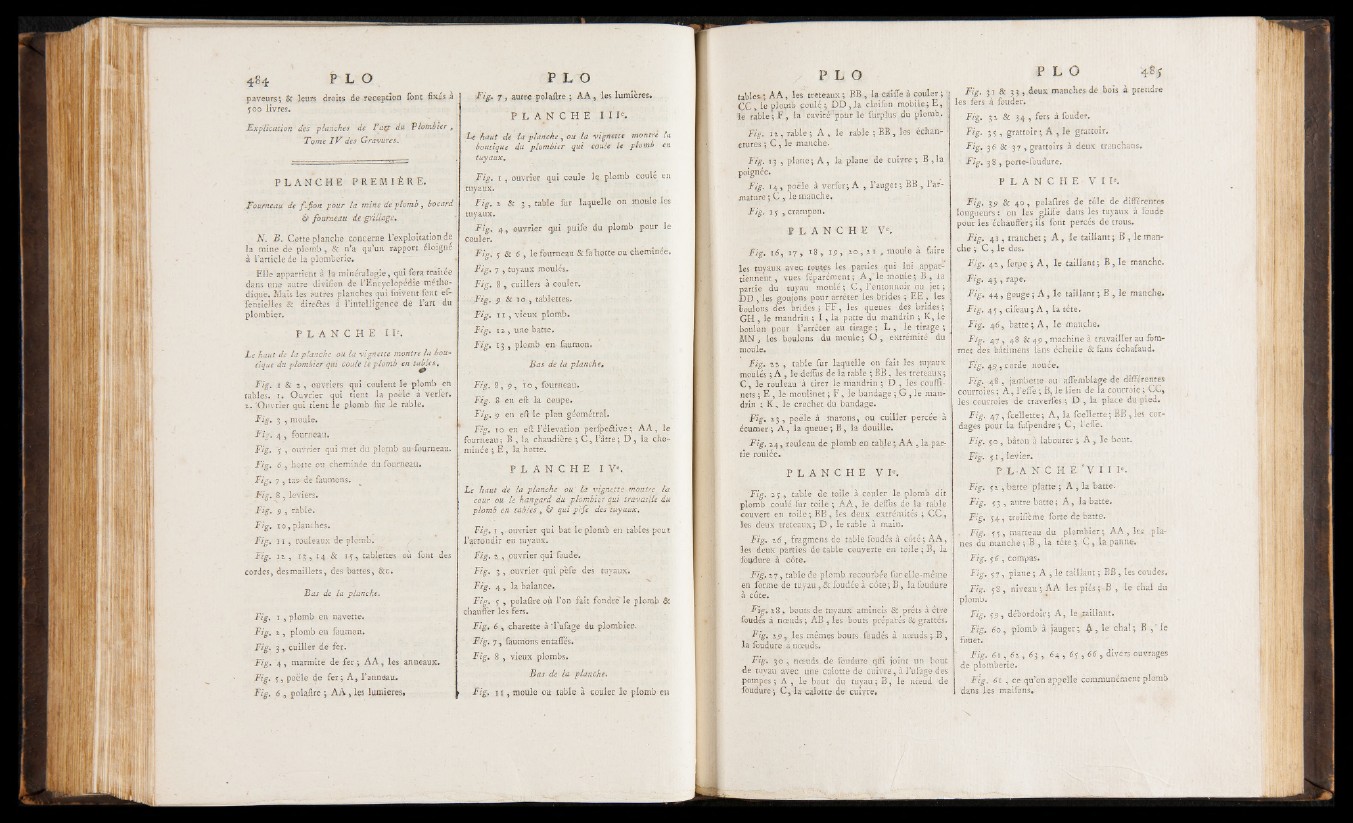 484 PLO
paveurs; & leurs droits de réception sont fixés à
500 livres.
Explication des planches de l'art du Plombier,
Tome IV des Gravures.
PLANCHE PREMIÈRE.
Fourneau de fusion pour la mine de plomb, bocard
& fourneau de grillage.
N. B. Cette planche concerne l'exploitation de
la mine de plomb, & n'a qu'un rapport éloigné
à l'article de la plomberie.
Elle appartient à la minéralogie, qui sera traitée
dans une autre division de l'Encyclopédie métho-
dique. Mais les autres planches qui suivent sont es-
sentielles & directes à l'intelligence de l'art du
plombier.
PLANCHE IIe.
Le haut de la planche ou la vignette montre la bou-
tique du plombier qui coule le plomb en tables.
Fig. 1 & 2, ouvriers qui coulent le plomb en
tables. 1. Ouvrier qui tient la poële à verser.
2. Ouvrier qui tient le plomb sur le rable.
Fig. 3, moule.
Fig. 4, fourneau.
Fig. 5, ouvrier qui met du plomb au fourneau.
Fig. 6, hotte ou cheminée du fourneau.
Fig. 7, tas de saumons.
Fig. 8, leviers.
Fig. 9, table.
Fig. 10, planches.
Fig. 11, rouleaux de plomb.
Fig. 12, 13, 14 & 15, tablettes où sont des
cordes, des maillets, des battes, &c.
Bas de la planche.
Fig. 1, plomb en navette.
Fig. 2, plomb en saumon.
Fig. 3, cuiller de fer.
Fig. 4, marmite de fer; AA, les anneaux.
Fig. 5, poële de fer; A, l'anneau.
Fig. 6, polastre; AA, les lumieres.
PLO
Fig. 7, autre polastre; AA, les lumières.
PLANCHE IIIe.
Le haut de la planche, ou la vignette montre la
boutique du plombier qui coule le plomb en
tuyaux.
Fig. 1, ouvrier qui coule le plomb coulé en
tuyaux.
Fig. 2 & 3, table sur laquelle on moule les
tuyaux.
Fig. 4, ouvrier qui puise du plomb pour le
couler.
Fig. 5 & 6, le fourneau & sa hotte ou cheminée.
Fig. 7, tuyaux moulés.
Fig. 8, cuillers à couler.
Fig. 9 & 10, tablettes.
Fig. 11, vieux plomb.
Fig. 12, une batte.
Fig. 13, plomb en saumon.
Bas de la planche.
Fig. 8, 9, 10, fourneau.
Fig. 8 en est la coupe.
Fig. 9 en est le plan géométral.
Fig. 10 en est l'élevation perspective; AA, le
fourneau; B, la chaudière; C, l'âtre; D, la che-
minée; E, la hotte.
PLANCHE IVe.
Le haut de la planche ou la vignette montre la
cour ou le hangard du plombier qui travaille du
plomb en tables, & qui pèse des tuyaux.
Fig. 1, ouvrier qui bat le plomb en tables pour
l'arrondir en tuyaux.
Fig. 2, ouvrier qui soude.
Fig. 3, ouvrier qui pèse des tuyaux.
Fig. 4, la balance.
Fig. 5, polastre où l'on fait fondre le plomb &
chauffer les fers.
Fig. 6, charette à l'usage du plombier.
Fig. 7, saumons entassés.
Fig. 8, vieux plombs.
Bas de la planche.
Fig. 11, moule ou table à couler le plomb en
PLO
tables; AA, les treteaux; BB, la caisse à couler;
CC, le plomb coulé; DD, la cloison mobile; E,
le rable; F, la cavité pour le surplus du plomb.
Fig. 12, rable; A, le rable; BB, les échan-
crures; C, le manche.
Fig. 13, plane; A, la plane de cuivre; B, la
poignée.
Fig. 14, poële à verser; A, l'auget; BB, l'ar-
mature; C, le manche.
Fig. 15, crampon.
PLANCHE Ve.
Fig. 16, 17, 18, 19, 20, 21, moule à faire
les tuyaux avec toutes les parties qui lui appar-
tiennent, vues séparément; A, le moule; B, la
partie du tuyau moulé; C, l'entonnoir ou jet;
DD, les goujons pour arrêter les brides; EE, les
boulons des brides; FF, les queues des brides;
GH, le mandrin; I, la patte du mandrin; K, le
boulon pour l'arrêter au tirage; L, le tirage;
MN, les boulons du moule; O, extrémité du
moule.
Fig. 22, table sur laquelle on fait les tuyaux
moulés; A, le dessus de la table; BB, les treteaux;
C, le rouleau à tirer le mandrin; D, les coussi-
nets; E, le moulinet; F, le bandage; G, le man-
drin; K, le crochet du bandage.
Fig. 23, poële à marons, ou cuiller percée à
écumer; A, la queue; B, la douille.
Fig. 24, rouleau de plomb en table; AA, la par-
tie roulée.
PLANCHE VIe.
Fig. 25, table de toile à couler le plomb dit
plomb coulé sur toile; AA, le dessus de la table
couvert en toile; BB, les deux extrémités; CC,
les deux treteaux; D, le rable à main.
Fig. 26, fragmens de table soudés à côté; AA,
les deux parties de table couverte en toile; B, la
soudure à côte.
Fig. 27, table de plomb recourbée sur elle-même
en forme de tuyau, & soudée à côte; B, la soudure
à côte.
Fig. 28, bouts de tuyaux amincis & prêts à être
soudés à nœuds; AB, les bouts préparés & grattés.
Fig. 29, les mêmes bouts soudés à nœuds; B,
la soudure à nœuds.
Fig. 30, nœuds de soudure qui joint un bout
de tuyau avec une calotte de cuivre, à l'usage des
pompes; A, le bout du tuyau; B, le nœud de
soudure; C, la calotte de cuivre.
PLO 485
Fig. 31 & 33, deux manches de bois à prendre
les fers à souder.
Fig. 32 & 34, fers à souder.
Fig. 35, grattoir; A, le grattoir.
Fig. 36 & 37, grattoirs à deux tranchans.
Fig. 38, porte-soudure.
PLANCHE VIIe.
Fig. 39 & 40, polastres de tôle de différentes
longueurs: on les glisse dans les tuyaux à soude
pour les échauffer; ils sont percés de trous.
Fig. 41, tranchet; A, le taillant; B, le man-
che; C, le dos.
Fig. 42, serpe; A, le taillant; B, le manche.
Fig. 43, rape.
Fig. 44, gouge; A, le taillant; B, le manche.
Fig. 45, ciseau; A, la tête.
Fig. 46, batte; A, le manche.
Fig. 47, 48 & 49, machine à travailler au som-
met des bâtimens sans échelle & sans échafaud.
Fig. 49, corde nouée.
Fig. 48, jambette ou assemblage de différentes
courroies; A, l'esse; B, le lien de la courroie; CC,
les courroies de traverses; D, la place du pied.
Fig. 47, scellette; A, la scellette; BB, les cor-
dages pour la suspendre; C, l'esse.
Fig. 50, bâton à labourer; A, le bout.
Fig. 51, levier.
PLANCHE VIIIe.
Fig. 52, batte platte; A, la batte.
Fig. 53, autre batte; A, la batte.
Fig. 54, troisième sorte de batte.
Fig. 55, marteau du plombier; AA, les pla-
nes du manche; B, la tête; C, la panne.
Fig. 56, compas.
Fig. 57, plane; A, le taillant; BB, les coudes.
Fig. 58, niveau; AA les piés; B, le chal du
plomb.
Fig. 59, débordoir; A, le taillant.
Fig. 60, plomb à jauger; A, le chal; B, le
fouet.
Fig. 61, 62, 63, 64, 65, 66, divers ouvrages
de plomberie.
Fig. 61, ce qu'on appelle communément plomb
dans les maisons.